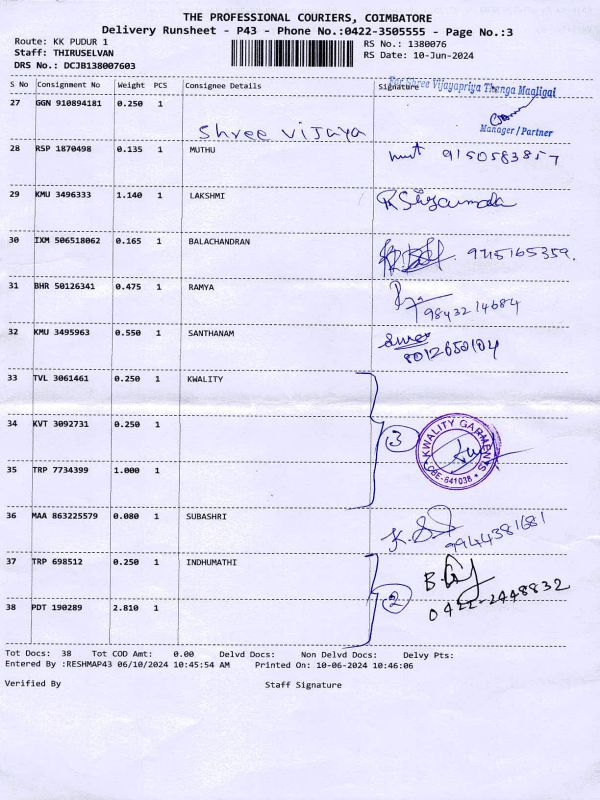 THE PROFESSIONAL COURIERS, COIMBATORE
Delivery Runsheet - P43 - Phone No.:0422-3505555 - Page No.:3
Route: KK PUDUR 1 RS No.: 1380076
Staff: THIRUSELVAN RS Date: 10-Jun-2024
DRS No.: DCJB138007603
S No Consignment No Weight PCS Consignee Details Signature
For Shree Vijayapriya Thanga Maaligai
27 GGN 910894181 0.250 1
Shree vijaya
Manager / Partner
28 RSP 1870498 0.135 1 MUTHU 9150583857
29 KMU 3496333 1.140 1 LAKSHMI
30 IXM 506518062 0.165 1 BALACHANDRAN 9715165359.
31 BHR 50126341 0.475 1 RAMYA
9843214684
32 KMU 3495963 0.550 1 SANTHANAM
8012650104
33 TVL 3061461 0.250 1 KWALITY
34 KVT 3092731 0.250 1
3 KWALITY GARMENTS CBE-641038
35 TRP 7734399 1.000 1
36 MAA 863225579 0.080 1 SUBASHRI
9944381681
37 TRP 698512 0.250 1 INDHUMATHI
38 PDT 190289 2.810 1 2 0422-2448832
Tot Docs: 38 Tot COD Amt: 0.00 Delvd Docs: Non Delvd Docs: Delvy Pts:
Entered By :RESHMAP43 06/10/2024 10:45:54 AM Printed On: 10-06-2024 10:46:06
Verified By Staff Signature